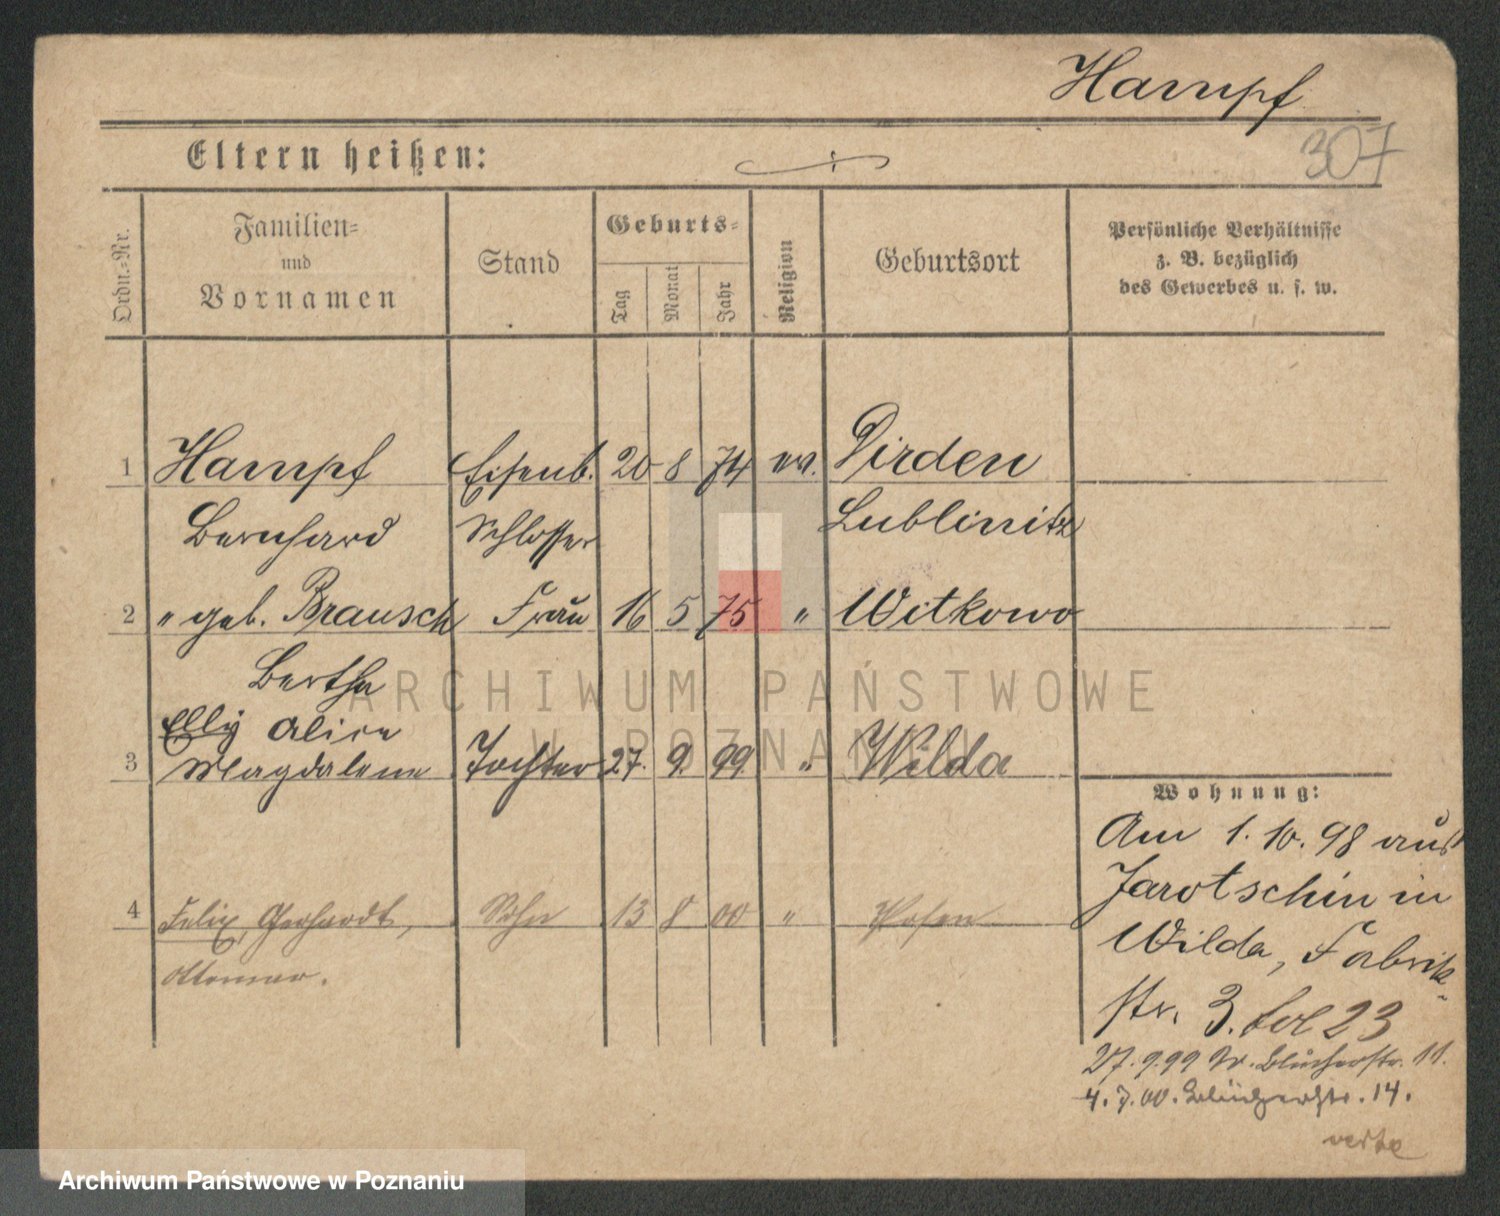 Hampf
307
Eltern heißen:
Ordn.-Nr.
Familien-
und
Vornamen
Stand
Geburts-
Tag
Monat
Jahr
Religion
Geburtsort
Persönliche Verhältnisse
z. B. bezüglich
des Gewerbes u. s. w.
1 Hampf Eisenb. 20 8 74 ev. Dirden
Bernhard Schlosser Lublinitz
2 " geb. Brausch Frau 16 5 75 " Witkowo
Bertha
Elly Alice
3 Magdalene Tochter 27. 9. 99. " Wilda
4 Felix, Gerhardt, Sohn 13 8 00 " Posen
Ottomar.
Wohnung:
Am 1. 10. 98 aus
Jarotschin in
Wilda, Fabrik-
str. 3. fol 23
27. 9. 99 W. Blücherstr. 11.
4. 7. 00. Blücherstr. 14.
verte
ARCHIWUM PAŃSTWOWE
W POZNANIU
Archiwum Państwowe w Poznaniu